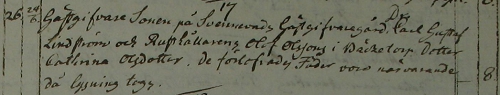 26 24/6 17
Gästgifvare Sonen på Svennevads Gästgifvaregård Dr. Carl Gustaf
Lindström och Rusthållarens Olof Olssons i Bäcketorp Dotter
Cathrina Olsdotter. De förlofvades Fäder voro närvarande
då Lysning togs. 8